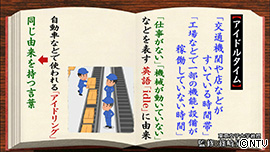 【アイドルタイム】
「交通機関や店などが
すいている時間帯」
「工場などで一部の機能・設備が
稼働していない時間」
「仕事がない」「機械が動いていない」
などを表す 英語「idle」に由来
自動車などで使われる「アイドリング」
同じ由来を持つ言葉
©NTV